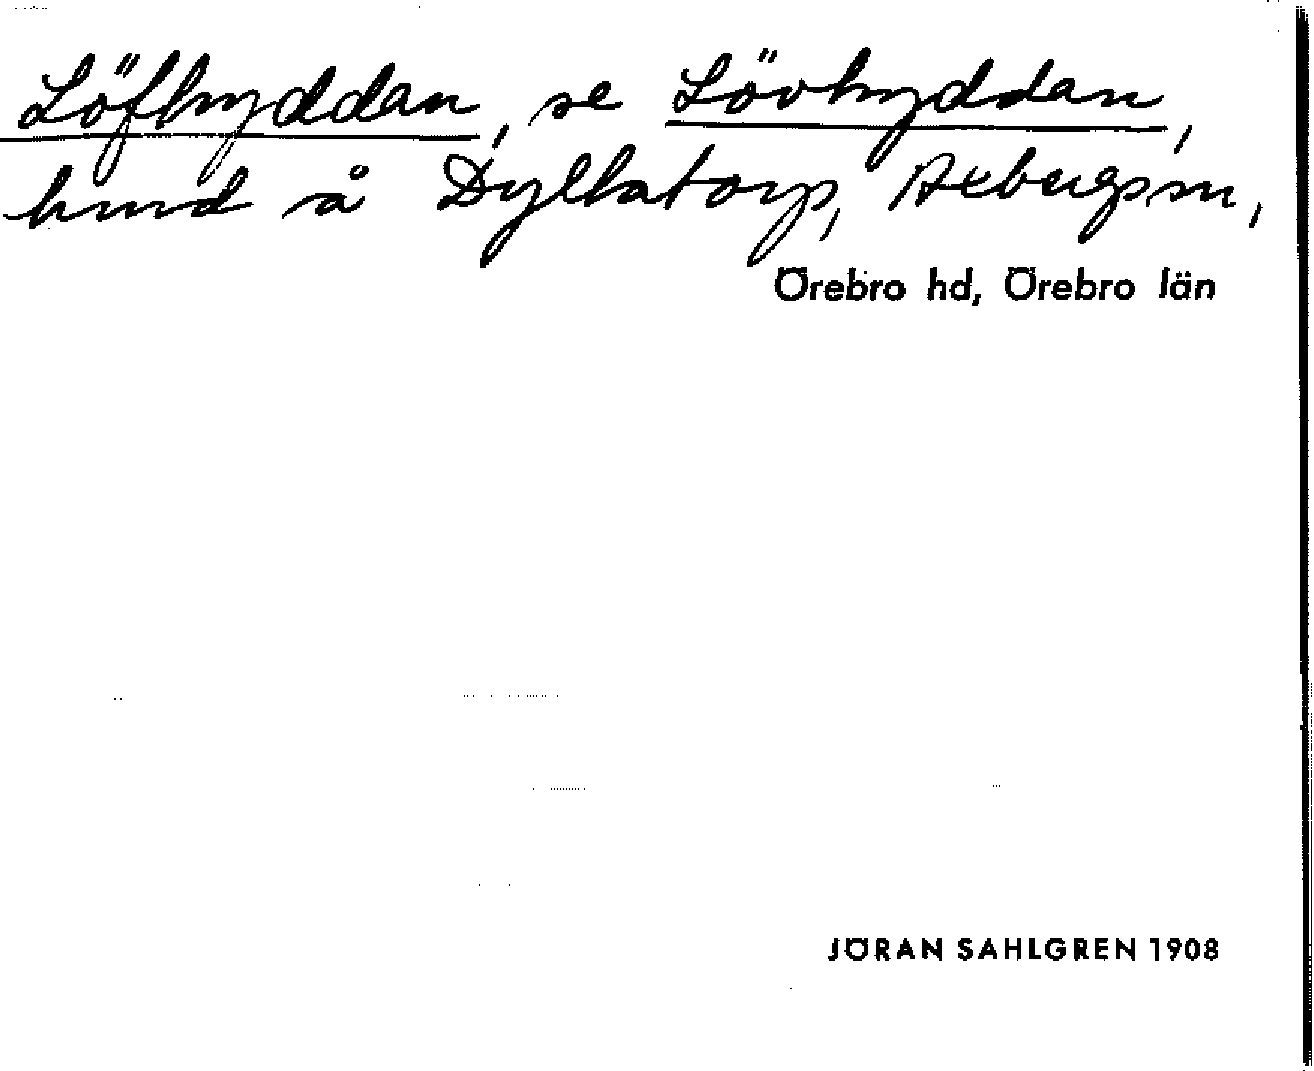 Löfhyddan, se Lövhyddan,
lund å Dyltatorp, Axbergs sn,
Örebro hd, Örebro län
JÖRAN SAHLGREN 1908